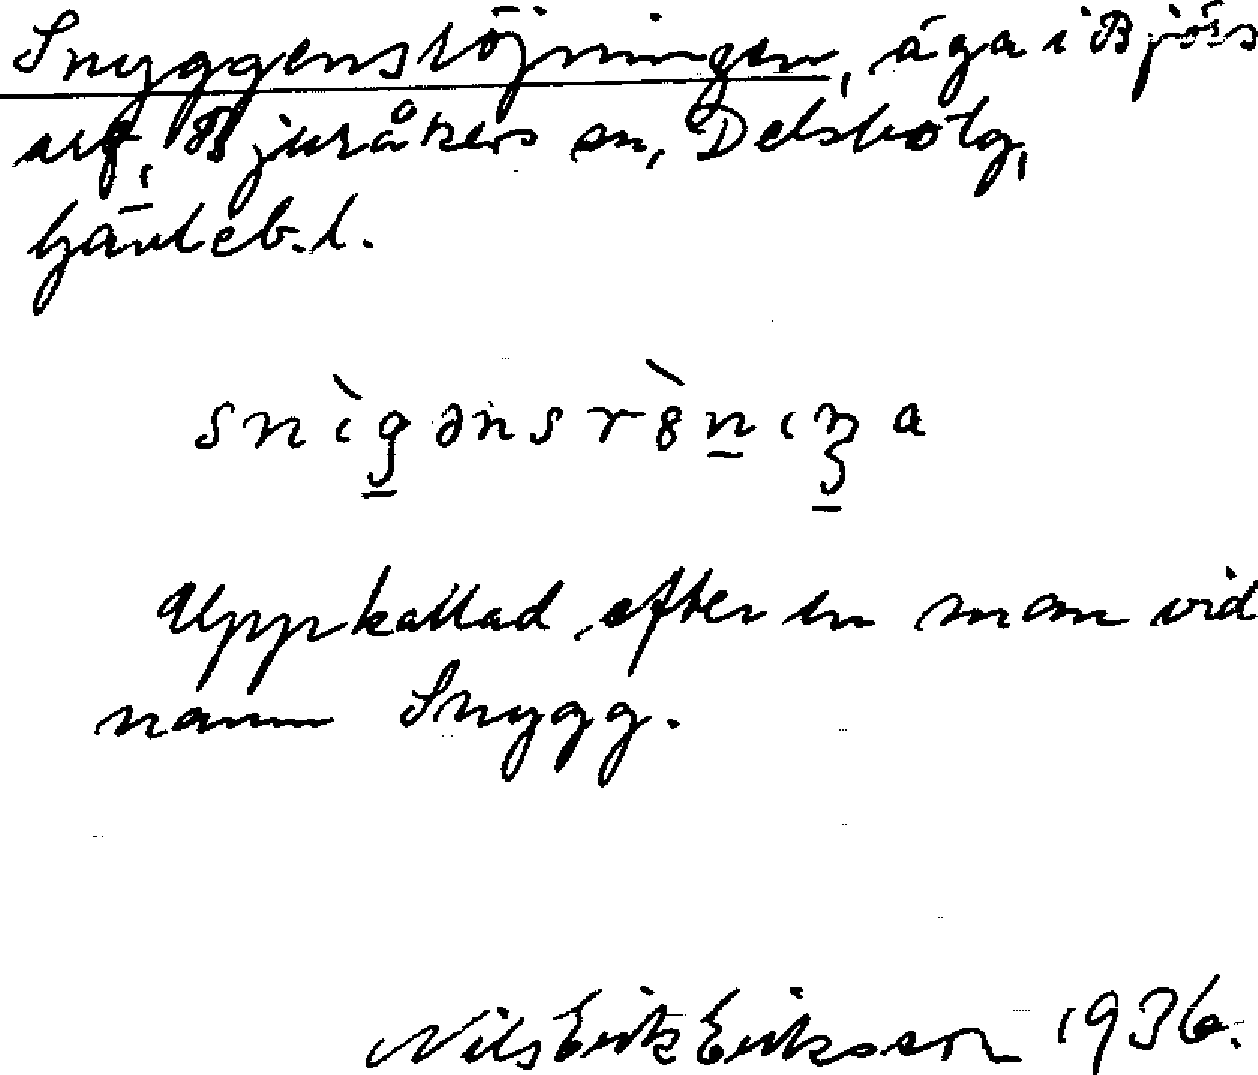 Snyggensröjningen, äga i Bjös
utf, Bjuråkers sn, Delsbo tg,
Gävleb. l.
snìgənsrònıŋa
Uppkallad efter en man vid
namn Snygg.
Nils Erik Eriksson 1936.